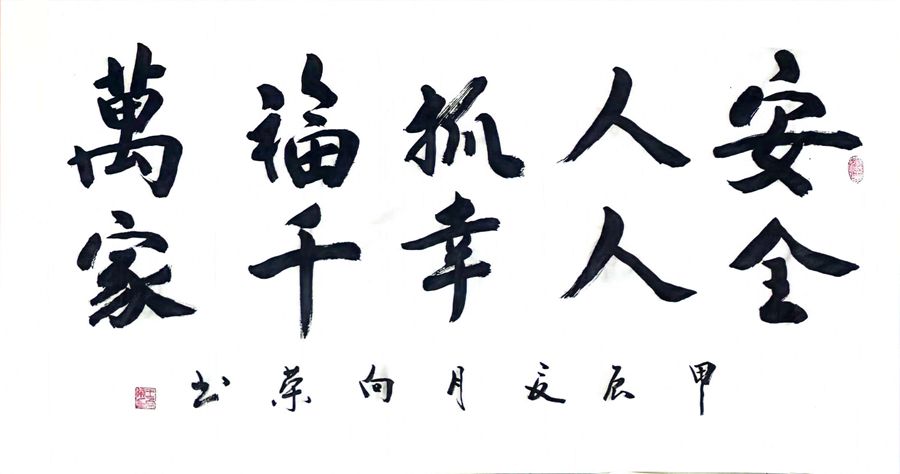 安全
人人
抓幸
福千
萬家
甲辰夏月向荣书